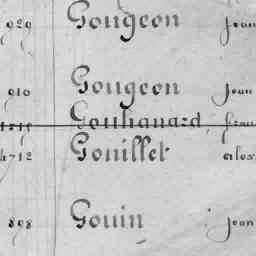 929 Gougeon Jean
910 Gougeon Jean
Gouhanard
4712 Gouillet alex
898 Gouin Jean